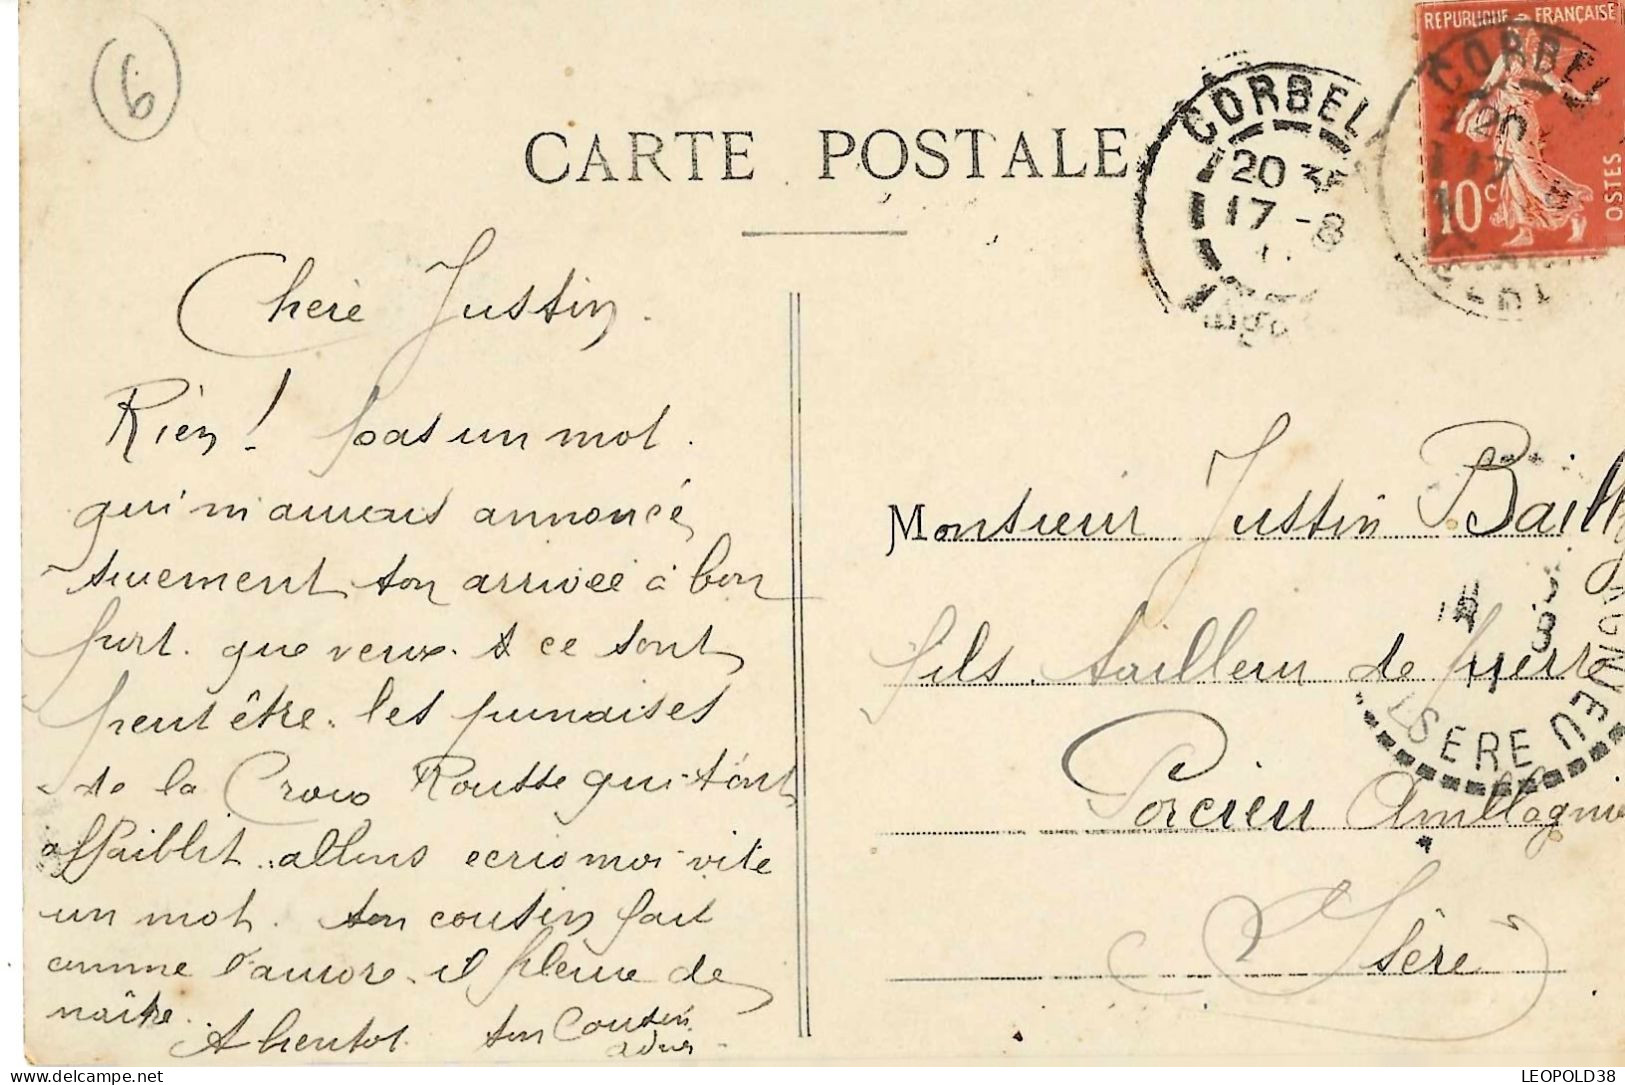 6
CARTE POSTALE
CORBEIL
20 35
17 - 8
REPUBLIQUE FRANÇAISE
POSTES
10 c
CORBEIL
20
17
Chère Justin.
Rien! pas un mot.
qui m'aurais annoncé
surement ton arrivée à bon
port. que veux-t ce sont
peut être les punaises
de la Croix Rousse qui t'ont
affaiblit. allons ecris moi vite
un mot. ton cousin fait
comme l'aurore. il pleure de
naître.
A bientot. ton Cousin
Monsieur Justin Bailly
fils tailleur de pierre
Porcieu Amblagnieu
Isère
ISERE
LEOPOLD38